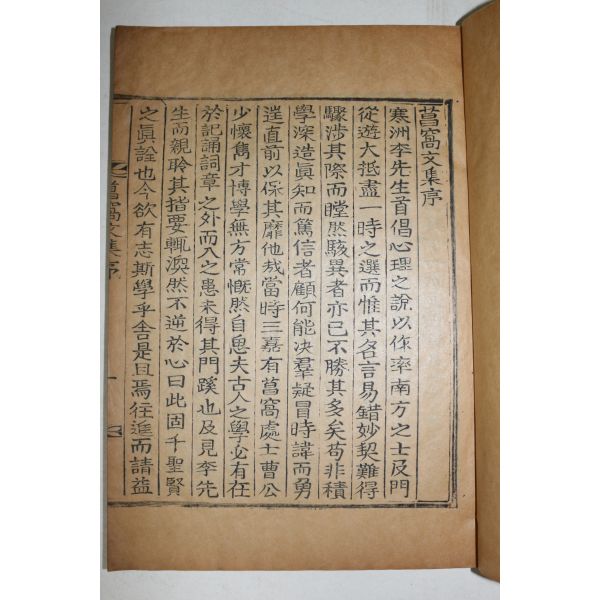 菖窩文集序
寒洲李先生首倡心理之說以作率南方之士及門
從遊大抵盡一時之選而惟其名言易錯妙契難得
驟涉其際而瞠然駭異者亦已不勝其多矣苟非積
學深造眞知而篤信者顧何能決羣疑冒時諱而勇
往直前以保其靡他哉當時三嘉有菖窩處士曹公
少懷雋才博學無方常慨然自思夫古人之學必有在
於記誦詞章之外而入之患未得其門蹊也及見李先
生而親聆其指要輒渙然不逆於心曰此固千聖賢
之眞詮也今欲有志斯學乎舍是且焉往進而請益
菖窩文集序
一